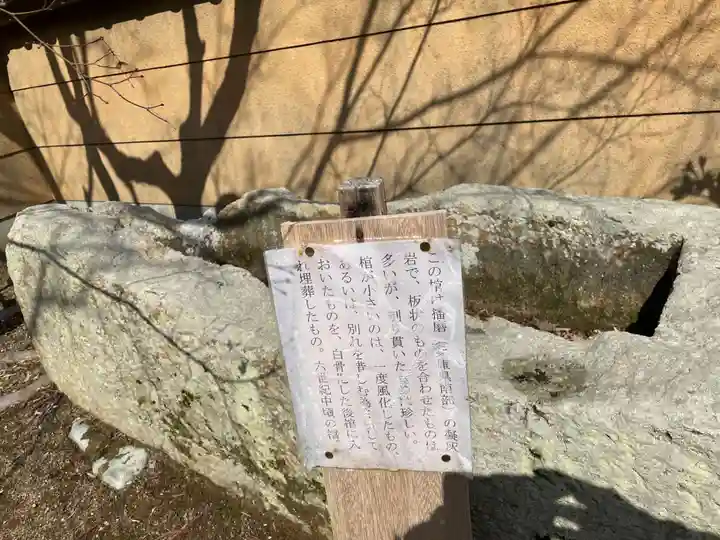 この棺は播磨(兵庫県南部)の凝灰
岩で、板状のものを合わせたものは
多いが、刳り貫いた は珍しい。
棺が小さいのは、一度風化したもの、
あるいは、別れを惜しむ為に して
おいたものを、白骨にした後棺に入
れ埋葬したもの。六世紀中頃の棺。